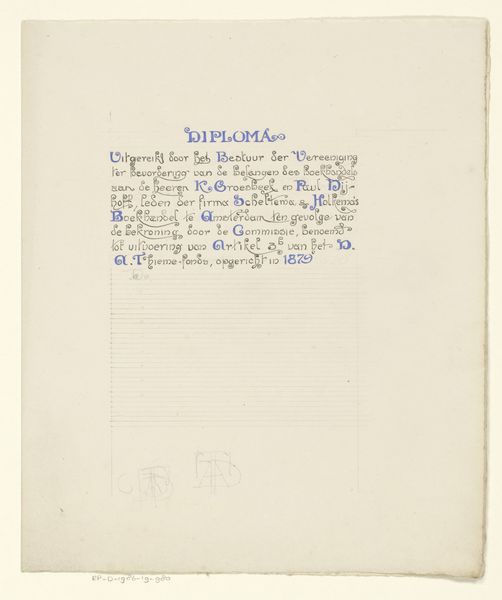 DIPLOMA
Uitgereikt door het Bestuur der Vereeniging
ter bevordering van de belangen des Boekhandels
aan de heeren K. Groesbeek en Paul Nij-
hoff, leden der firma Scheltema & Holkema's
Boekhandel te Amsterdam ten gevolge van
de bekroning door de Commissie, benoemd
tot uitvoering van Artikel 3b van het D.
A. Thieme-fonds, opgericht in 1879
RP-D-1986-19-980